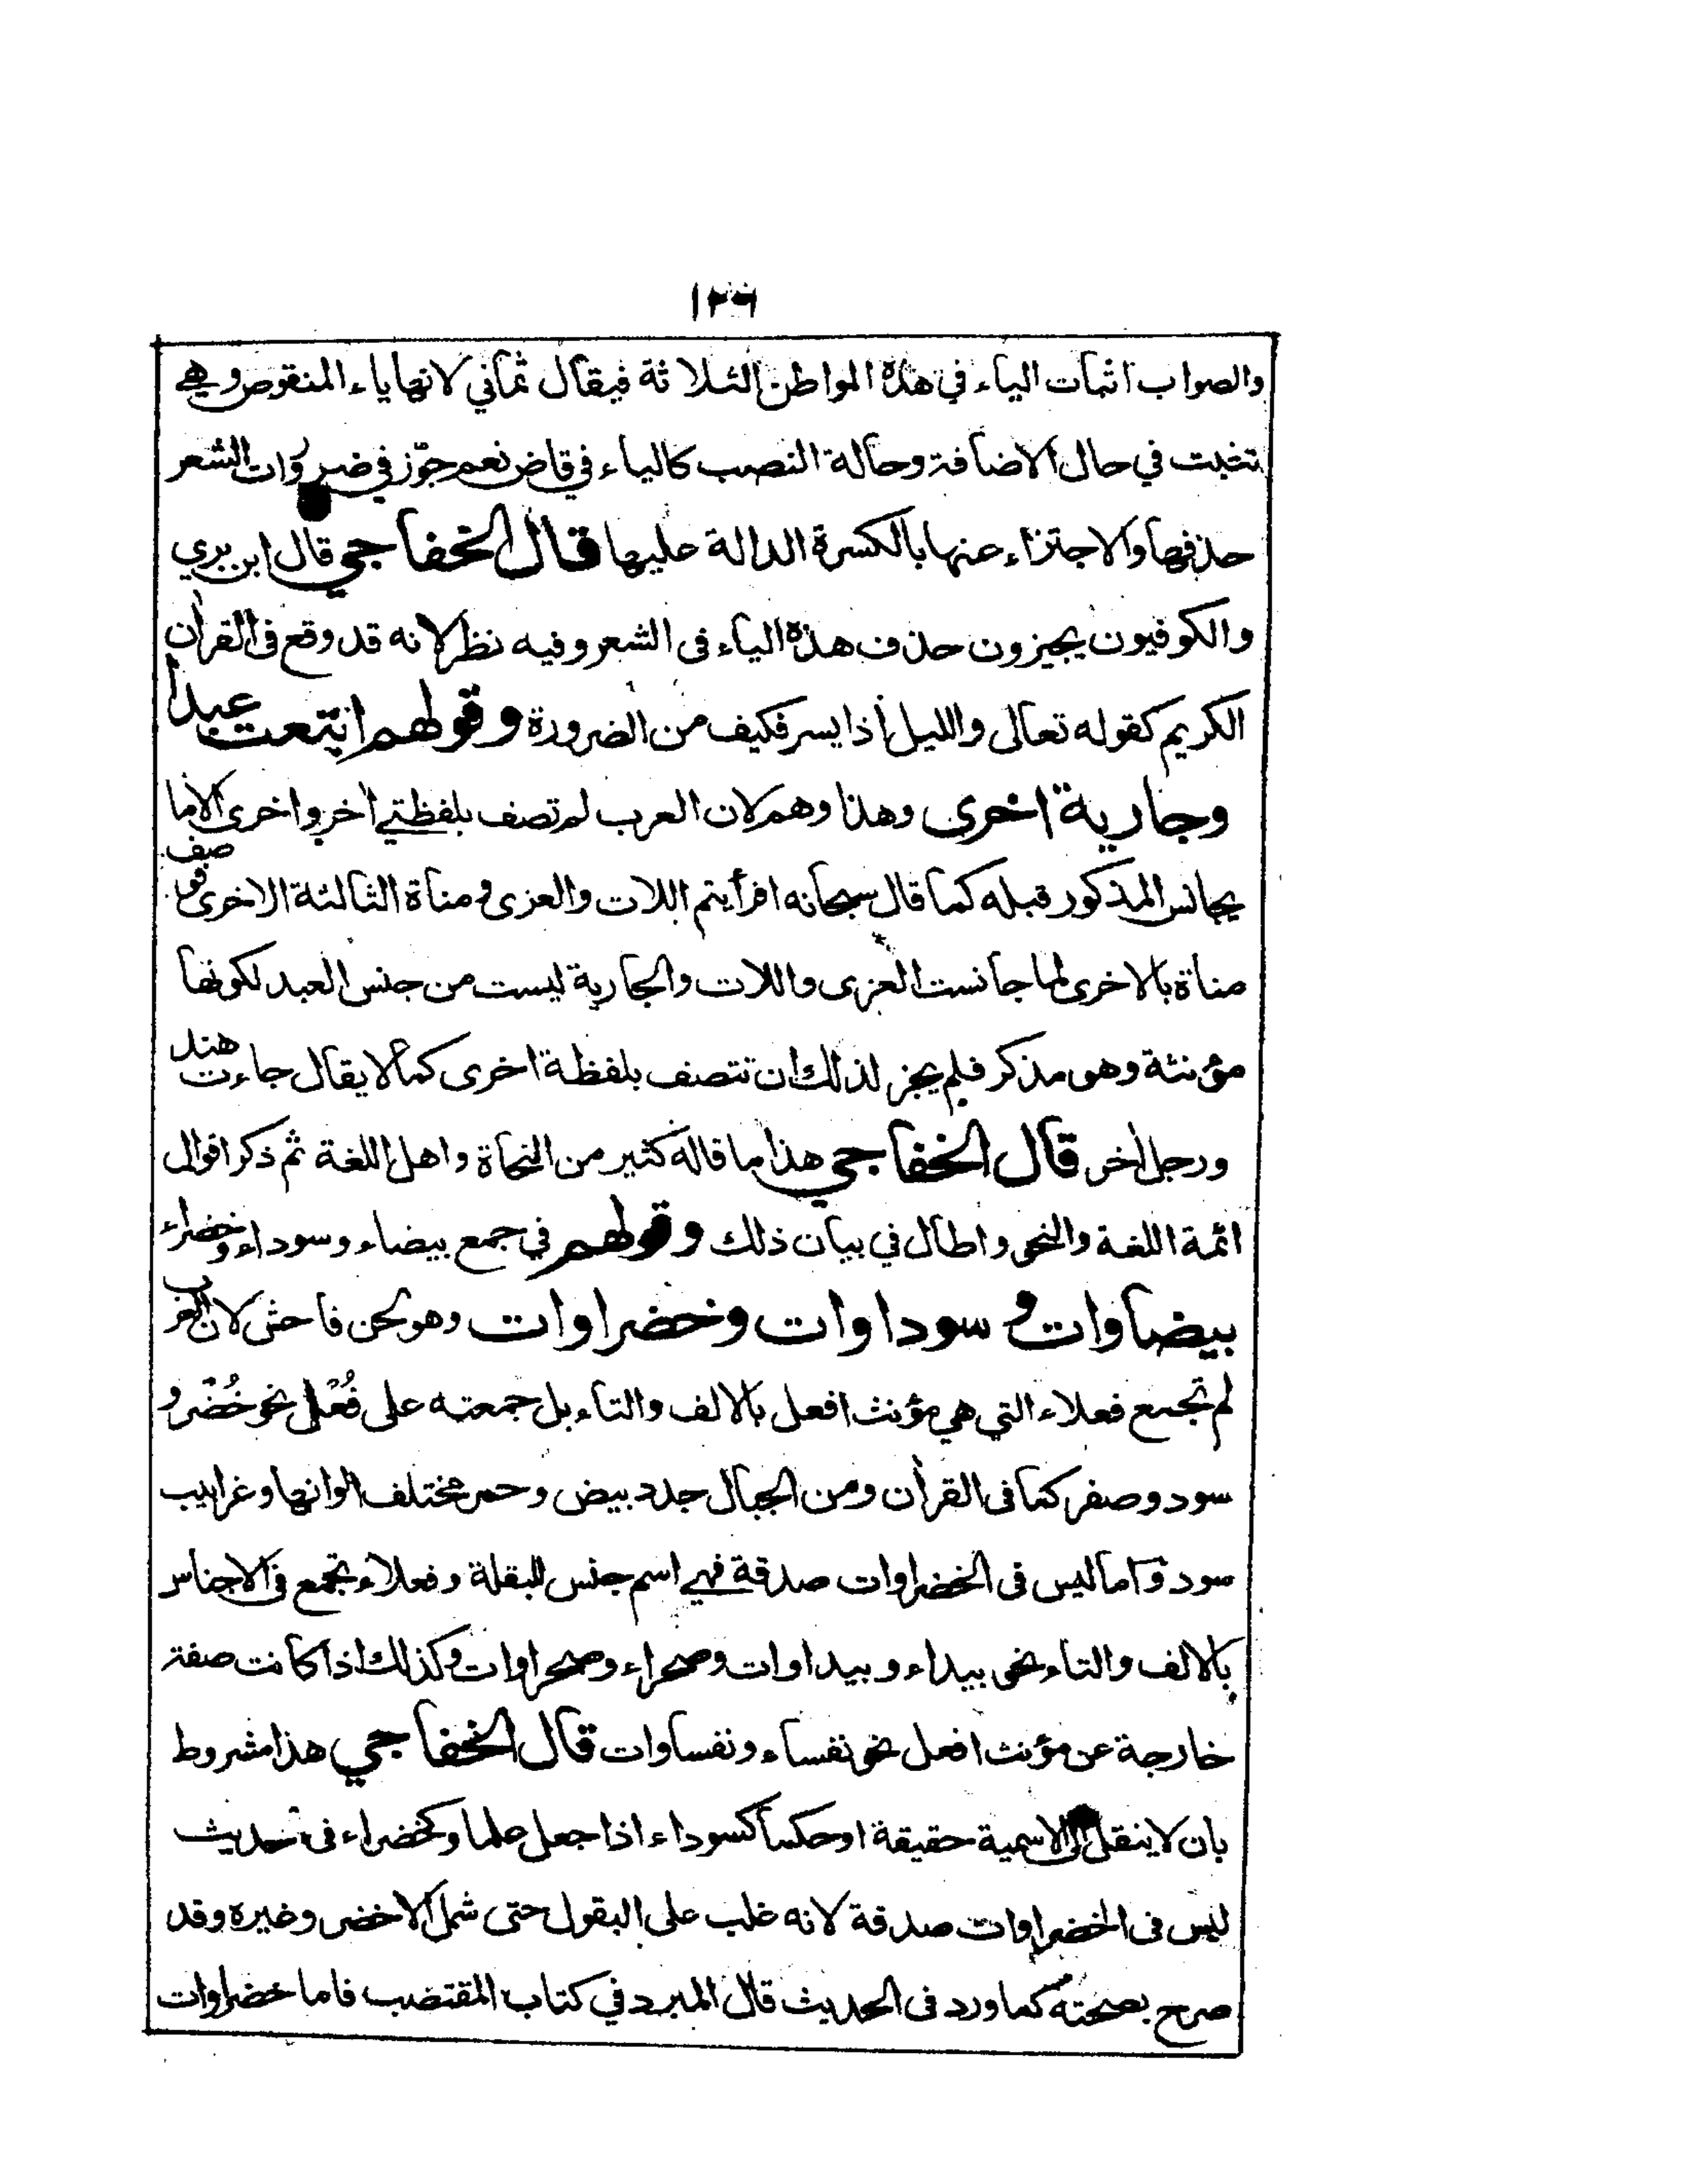 ١٢٦
والصواب اثبات الياء في هذه المواطن الثلاثة فيقال ثماني لانها ياء المنقوص وهي
تثبت في حال الاضافة وحالة النصب كالياء في قاض نعم جوّز في ضرورات الشعر
حذفها والاجتزاء عنها بالكسرة الدالة عليها قال الخفاجي قال ابن بري
والكوفيون يجيزون حذف هذه الياء فى الشعر وفيه نظر لانه قد وقع فى القرأن
الكريم كقوله تعالى والليل أذا يسر فكيف من الضرورة وقولهم ابتعت عبدا
وجارية اخرى وهذا وهم لان العرب لم تصف بلفظتي أخر واخرى الا ما
يجانس المذكور قبله كما قال سبحانه افرأيتم اللات والعزى ومناة الثالثة الاخرى فوصف
مناة بالاخرى لما جانست العزى واللات والجارية ليست من جنس العبد لكونها
مؤنثة وهو مذكر فلم يجز لذلك ان تتصف بلفظة اخرى كما لا يقال جاءت هند
ورجل أخر قال الخفاجي هذا ما قاله كثير من النحاة واهل اللغة ثم ذكر اقوال
ائمة اللغة والنحو واطال في بيان ذلك وقولهم في جمع بيضاء وسوداء وخضراء
بيضاوات وسوداوات وخضراوات وهو لحن فاحش لان العرب
لم تجمع فعلاء التي هي مؤنث افعل بالالف والتاء بل جمعته على فُعْل نحو خُضْر و
سود وصفر كما فى القرأن ومن الجبال جدد بيض وحمر مختلف الوانها وغرابيب
سود واما ليس فى الخضراوات صدقة فهي اسم جنس للبقلة وفعلاء تجمع فى الاجناس
بالالف والتاء نحو بيداء وبيداوات وصحراء وصحراوات وكذلك اذا كانت صفة
خارجة عن مؤنث افعل نحو نفساء ونفساوات قال الخفاجي هذا مشروط
بان لا ينقل الى الاسمية حقيقة او حكما كسوداء اذا جعل علما وكخضراء فى حديث
ليس فى الخضراوات صدقة لانه غلب على البقول حتى شمل الاخضر وغيره وقد
صرح بصحته كما ورد فى الحديث قال المبرد في كتاب المقتضب فاما خضراوات